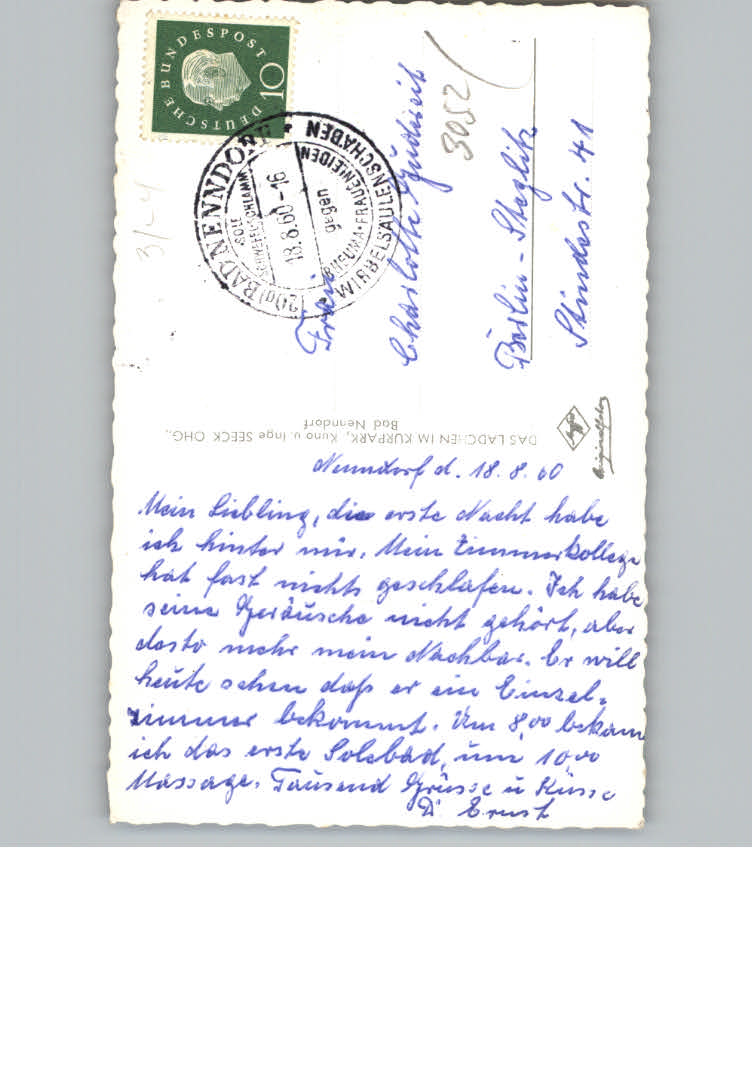 DEUTSCHE BUNDESPOST
10
(20a) BAD NENNDORF
SOLE
SCHWEFEL SCHLAMM
18.8.60-16
gegen
RHEUMA·FRAUENLEIDEN
WIRBELSÄULENSCHÄDEN
3052
31-4
Frau
Charlotte
Berlin-Steglitz
Stindestr. 41
DAS LÄDCHEN IM KURPARK, Kuno u. Inge SEECK OHG.,
Bad Nenndorf
Agfa
Originalfoto
Nenndorf d. 18.8.60
Mein Liebling, die erste Nacht habe
ich hinter mir. Mein Zimmerkollege
hat fast nichts geschlafen. Ich habe
seine Geräusche nicht gehört, aber
desto mehr mein Nachbar. Er will
heute sehen daß er ein Einzel-
zimmer bekommt. Um 8,00 bekam
ich das erste Solebad, um 10,00
Massage. Tausend Grüsse u Küsse
D. Ernst